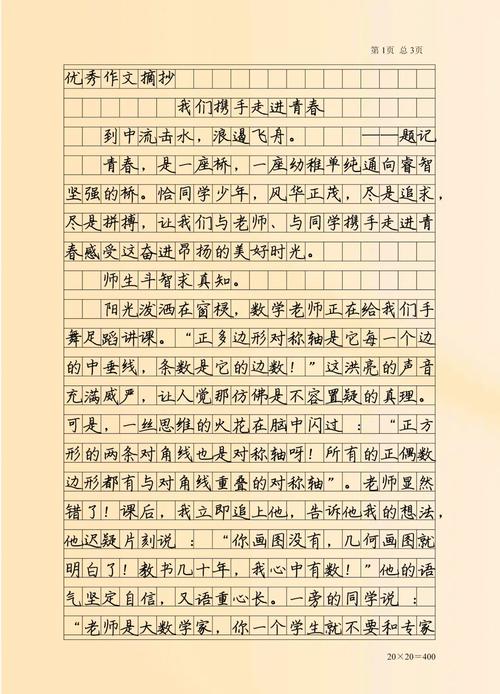 第1页 总3页
优秀作文摘抄
我们携手走进青春
到中流击水，浪遏飞舟。 ——题记
青春，是一座桥，一座幼稚单纯通向睿智
坚强的桥。恰同学少年，风华正茂，尽是追求，
尽是拼搏，让我们与老师、与同学携手走进青
春感受这奋进昂扬的美好时光。
师生斗智求真知。
阳光泼洒在窗棂，数学老师正在给我们手
舞足蹈讲课。“正多边形对称轴是它每一个边
的中垂线，条数是它的边数！”这洪亮的声音
充满威严，让人觉那仿佛是不容置疑的真理。
可是，一丝思维的火花在脑中闪过：“正方
形的两条对角线也是对称轴呀！所有的正偶数
边形都有与对角线重叠的对称轴”。老师显然
错了！课后，我立即追上他，告诉他我的想法，
他迟疑片刻说：“你画图没有，几何画图就
明白了！教书几十年，我心中有数！”他的语
气坚定自信，又语重心长。一旁的同学说：
“老师是大数学家，你一个学生就不要和专家
20×20=400